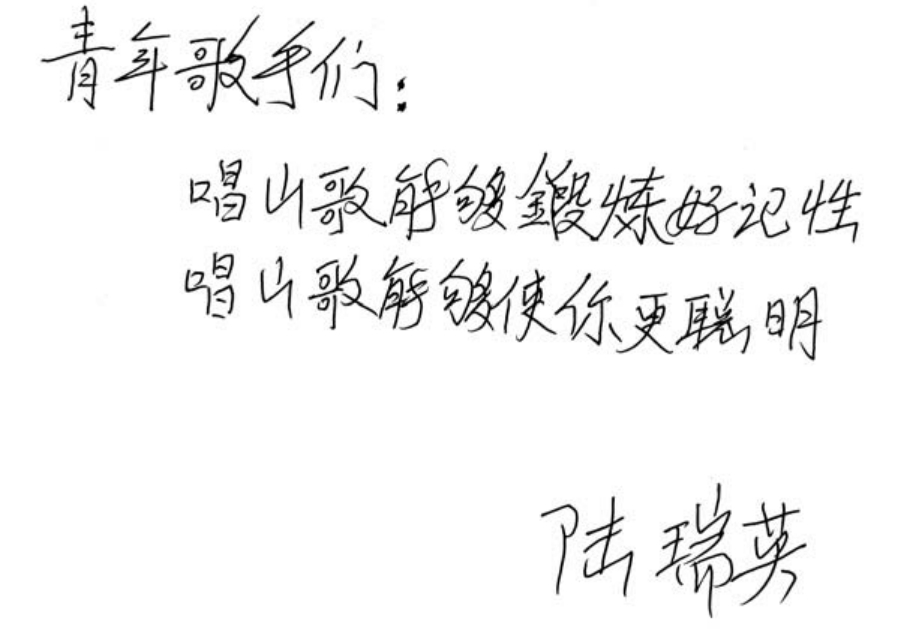 青年歌手们:
唱山歌能够鍛炼好记性
唱山歌能够使你更聪明
陆瑞英